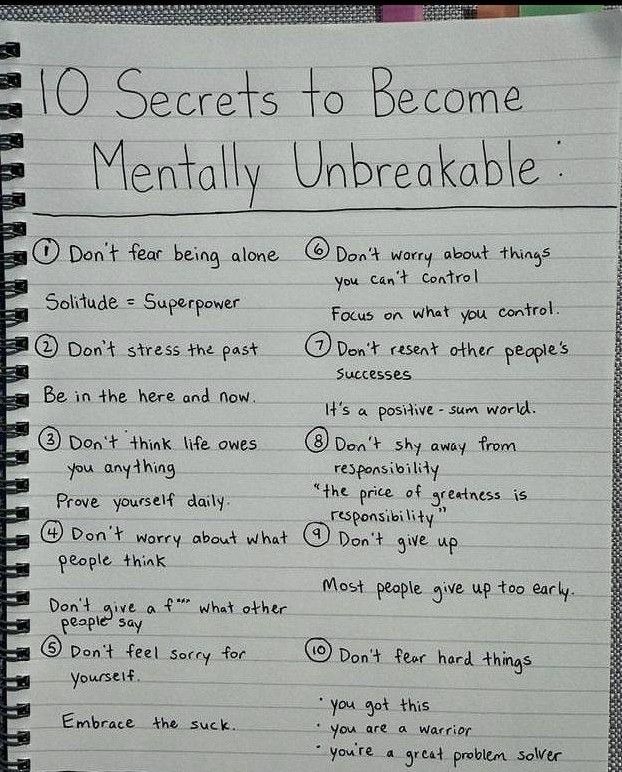 10 Secrets to Become
Mentally Unbreakable:
① Don't fear being alone
Solitude = Superpower
② Don't stress the past
Be in the here and now.
③ Don't think life owes
you anything
Prove yourself daily.
④ Don't worry about what
people think
Don't give a f*** what other
people say
⑤ Don't feel sorry for
yourself.
Embrace the suck.
⑥ Don't worry about things
you can't control
Focus on what you control.
⑦ Don't resent other people's
successes
It's a positive-sum world.
⑧ Don't shy away from
responsibility
"the price of greatness is
responsibility"
⑨ Don't give up
Most people give up too early.
⑩ Don't fear hard things
· you got this
· you are a warrior
· you're a great problem solver